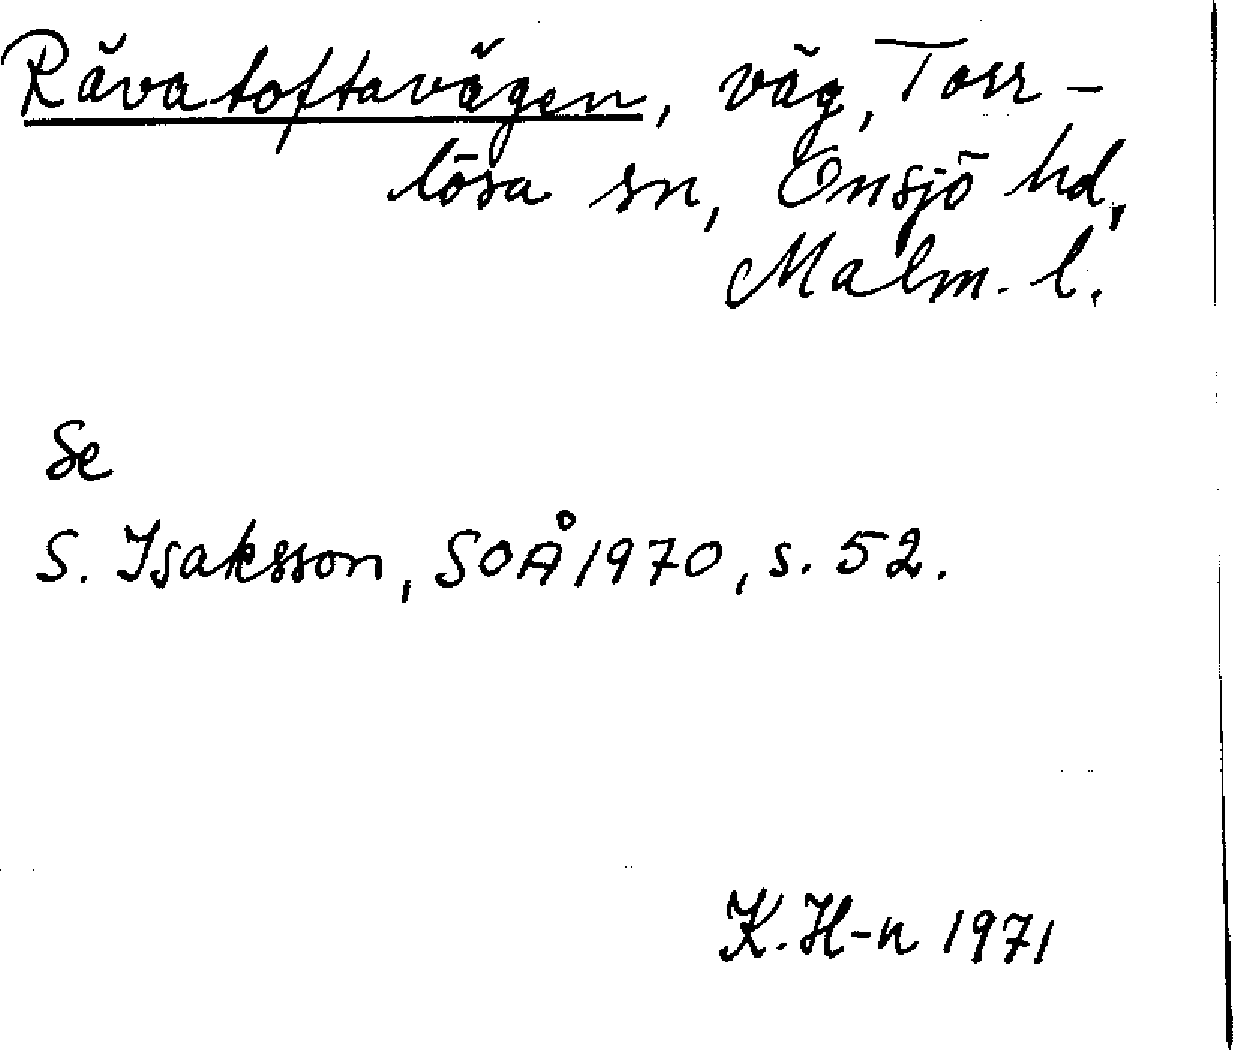 Rävatoftavägen, väg, Torr-
lösa sn, Onsjö hd,
Malm. l.
Se
S. Isaksson, SOÅ 1970, s. 52.
K. H-n 1971